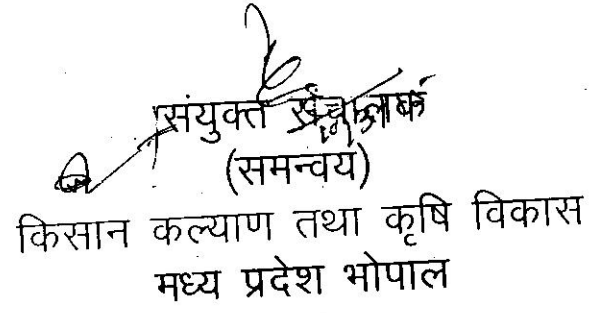 संयुक्त संचालक
(समन्वय)
किसान कल्याण तथा कृषि विकास
मध्य प्रदेश भोपाल